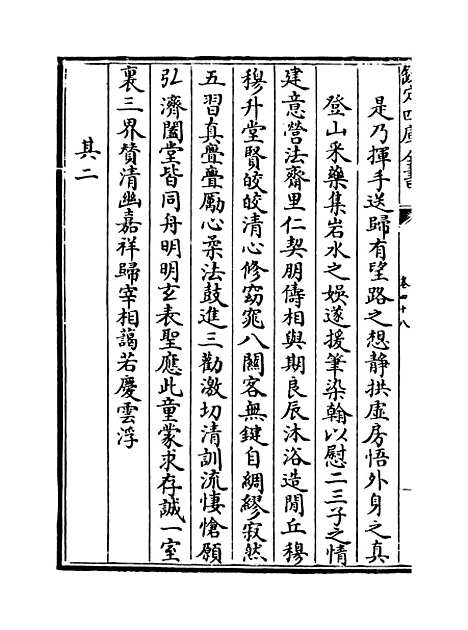 欽定四庫全書
卷四十八
是乃揮手送歸有望路之想静拱虚房悟外身之真
登山采藥集岩水之娛遂援筆染翰以慰二三子之情
建意營法齋里仁契朋儔相與期良辰沐浴造閒丘穆
穆升堂賢皎皎清心修窈窕八關客無鍵自綢繆寂然
五習真亹亹勵心柔法鼓進三勸激切清訓流悽愴願
弘濟闔堂皆同舟明明玄表聖應此童蒙求存誠一室
裏三界賛清幽嘉祥歸宰相藹若慶雲浮
其二